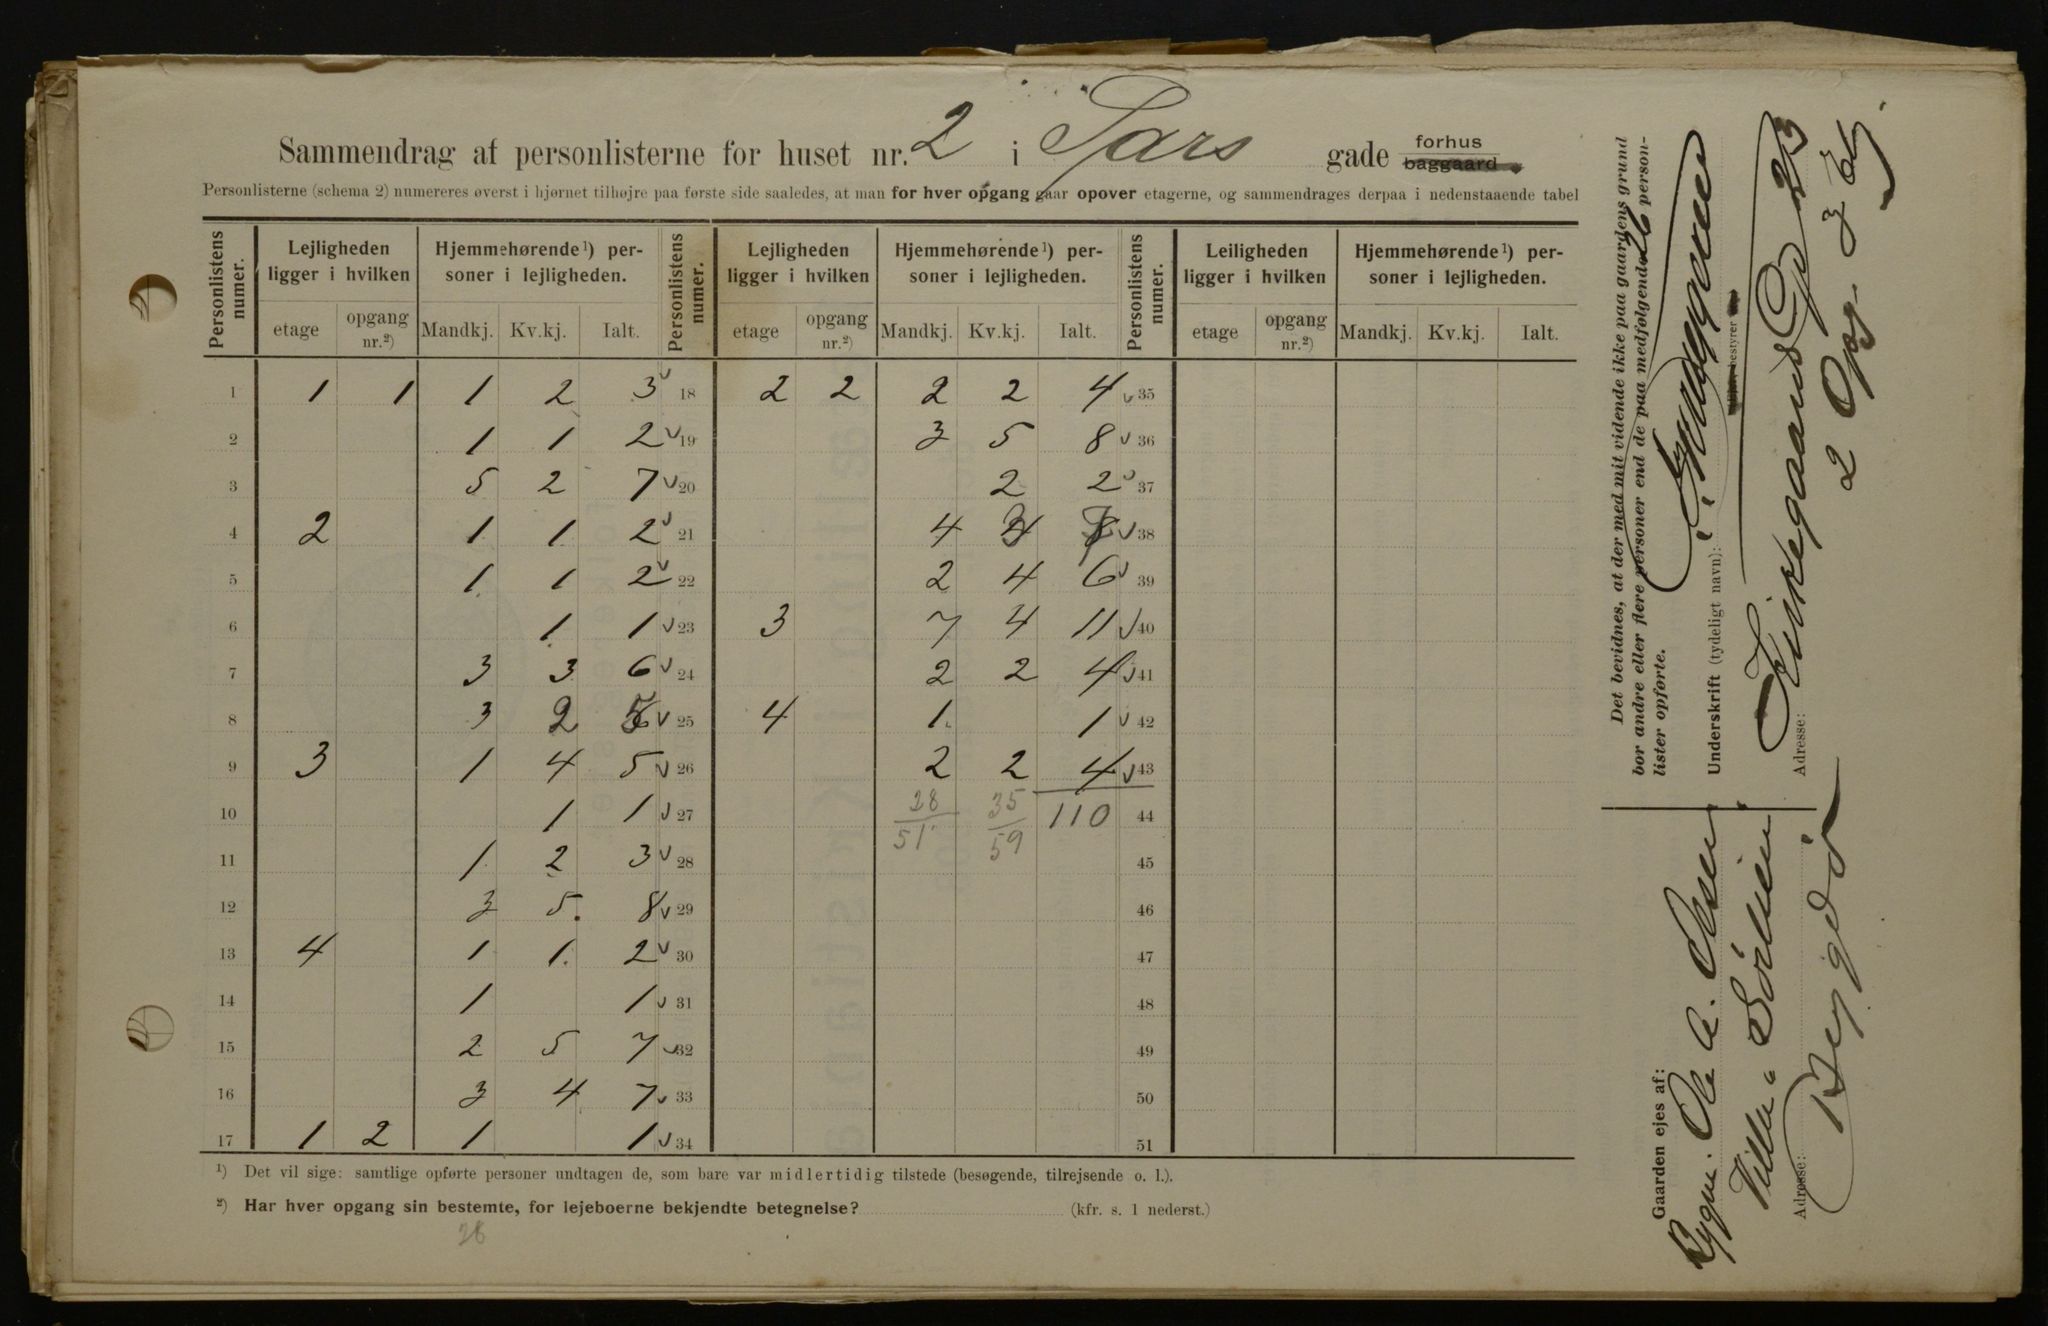 Sammendrag af personlisterne for huset nr. 2 i Sars gade forhus baggaard
Personlisterne (schema 2) numereres øverst i hjørnet tilhøjre paa første side saaledes, at man for hver opgang gaar opover etagerne, og sammendrages derpaa i nedenstaaende tabel
Personlistens numer. Lejligheden ligger i hvilken Hjemmehørende¹) personer i lejligheden. Personlistens numer. Lejligheden ligger i hvilken Hjemmehørende¹) personer i lejligheden. Personlistens numer. Leiligheden ligger i hvilken Hjemmehørende¹) personer i lejligheden.
etage opgang nr.²) Mandkj. Kv.kj. Ialt. etage opgang nr.²) Mandkj. Kv.kj. Ialt. etage opgang nr.²) Mandkj. Kv.kj. Ialt.
1 1 1 1 2 3 18 2 2 2 2 4 35
2 1 1 2 19 3 5 8 36
3 5 2 7 20 2 2 37
4 2 1 1 2 21 4 3 7 38
5 1 1 2 22 2 4 6 39
6 1 1 23 3 7 4 11 40
7 3 3 6 24 2 2 4 41
8 3 2 5 25 4 1 1 42
9 3 1 4 5 26 2 2 4 43
10 1 1 27 28 35 110 44
51 59
11 1 2 3 28 45
12 3 5 8 29 46
13 4 1 1 2 30 47
14 1 1 31 48
15 2 5 7 32 49
16 3 4 7 33 50
17 1 2 1 1 34 51
¹) Det vil sige: samtlige opførte personer undtagen de, som bare var midlertidig tilstede (besøgende, tilrejsende o. l.).
²) Har hver opgang sin bestemte, for lejeboerne bekjendte betegnelse? (kfr. s. 1 nederst.)
28
Det bevidnes, at der med mit vidende ikke paa gaardens grund
bor andre eller flere personer end de paa medfølgende 26 person-
lister opførte.
Underskrift (tydeligt navn):
bestyrer
Adresse: Kirkegaards Gd 23
2 Opg. 3 Etg
Gaarden ejes af:
Bygm. Ole A. Olsen
Villa Sólheim
Adresse: Bygdø